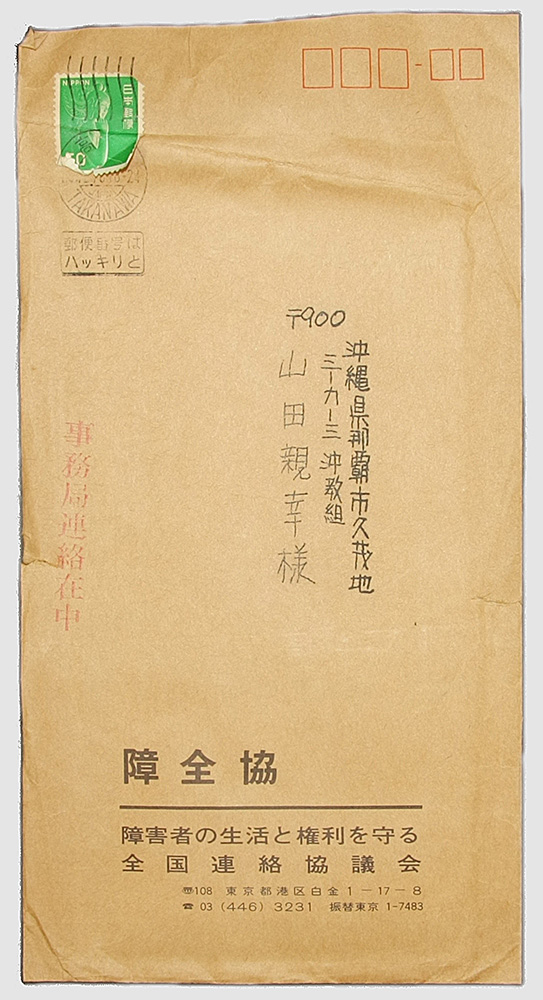 NIPPON
日本郵便
50
TAKANAWA
郵便番号は
ハッキリと
〒900
沖縄県那覇市久茂地
三ー九ー三 沖教組
山田親幸様
事務局連絡在中
障全協
障害者の生活と権利を守る
全国連絡協議会
〠108 東京都港区白金1-17-8
☎ 03(446)3231 振替東京 1-7483